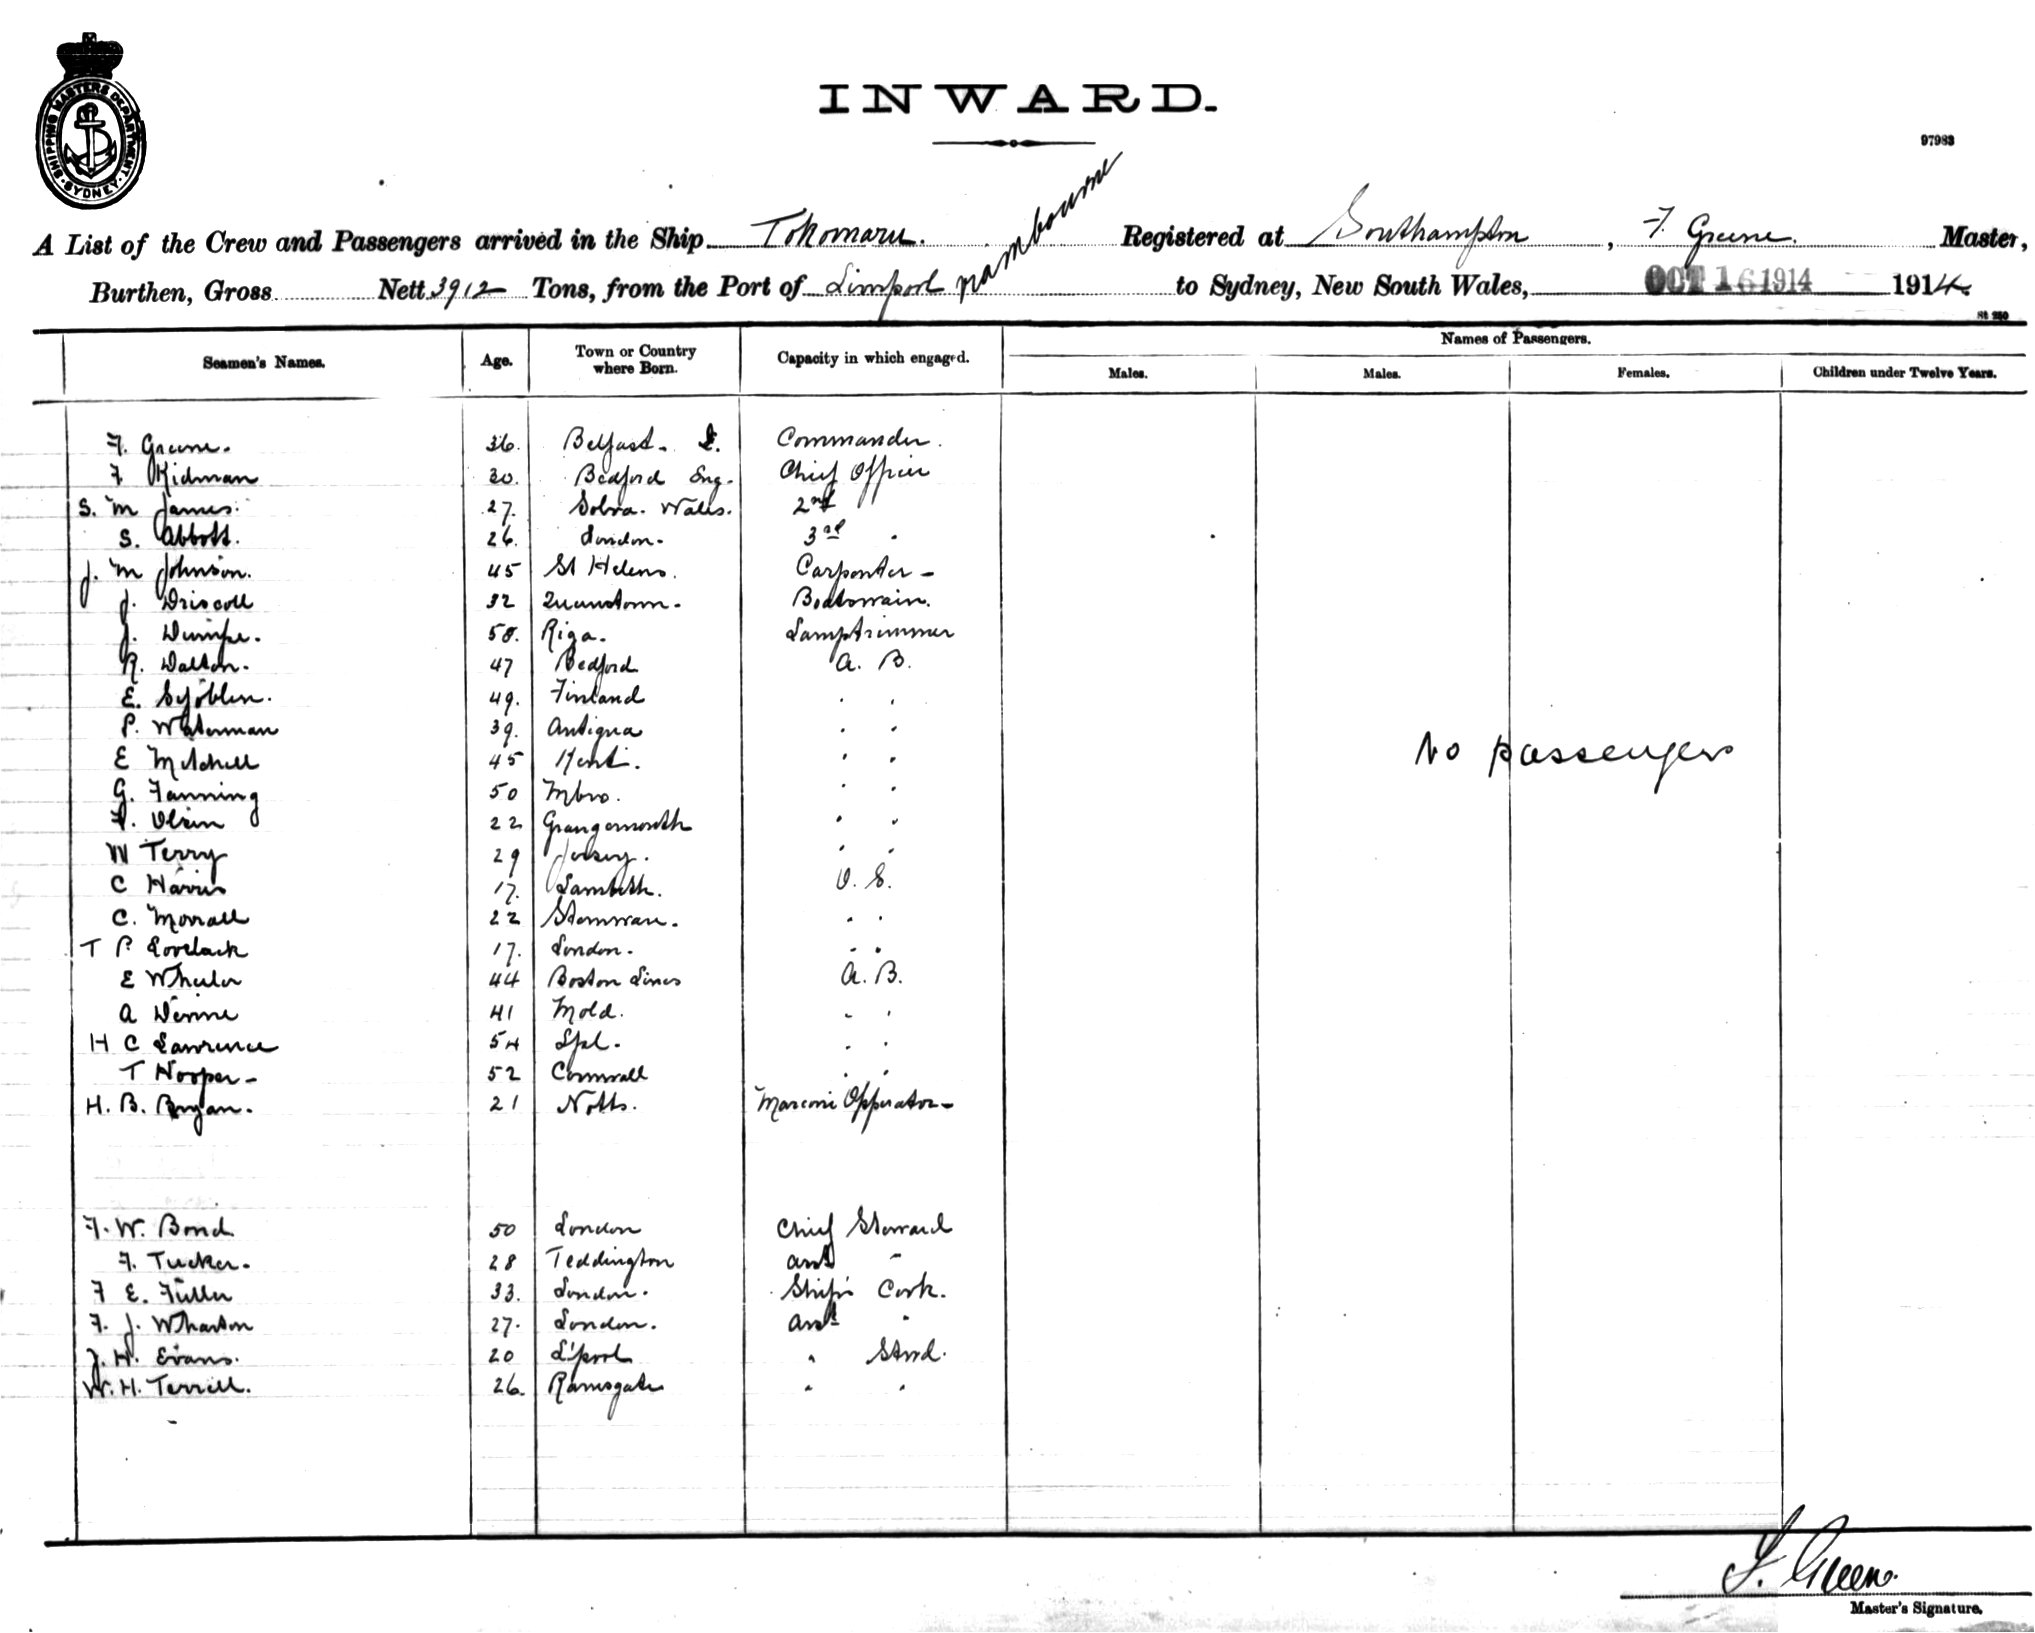 SHIPPING MASTERS DEPARTMENT. SYDNEY.
INWARD.
97983
A List of the Crew and Passengers arrived in the Ship Tokomaru. Registered at Southampton, F. Greene. Master,
Burthen, Gross Nett 3912 Tons, from the Port of Liverpool to Sydney, New South Wales, OCT 16 1914 1914.
St 250
Seamen's Names. Age. Town or Country where Born. Capacity in which engaged. Names of Passengers.
Males. Males. Females. Children under Twelve Years.
F. Greene. 36. Belfast. I. Commander.
F Kidman 30. Bedford Eng. Chief Officer
S. M James. 27. Solva. Wales. 2nd
S. Abbott. 26. London. 3rd "
J. M Johnson. 45 St Helens. Carpenter
J. Driscoll 32 Queenstown. Boatswain.
J. 50. Riga. Lamptrimmer
R. Dalton. 47 Bedford A. B.
E. Sjoblen. 49. Finland " "
P. Waterman 39. Antigua " "
E Mitchell 45 Kent. " "
No passengers
G. Fanning 50 Mbro. " "
22 Grangemouth " "
W Terry 29 Jersey. " "
C Harris 17. Lambeth. O. S.
C. Morrall 22 " "
T P Lovelack 17. London. " "
E Wheeler 44 Boston Lincs A. B.
A 41 Mold. " "
H C Lawrence 54 Lpl. " "
T Hooper 52 Cornwall " "
H. B. Bryan. 21 Notts. Marconi Opperator
F. W. Bond 50 London Chief Steward
F. Tucker. 28 Teddington asst "
F E. Fuller 33. London. Ship's Cook.
F. J. Wharton 27. London. asst "
J. H. Evans. 20 L'pool " Stwd.
W. H. Terrill. 26. Ramsgate " "
F. Greene.
Master's Signature.